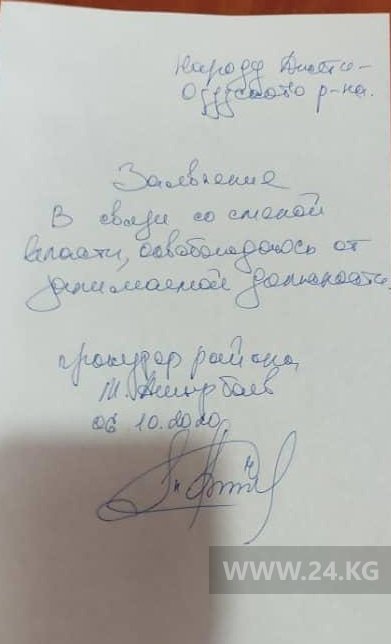 Народу Джети-
Огузского р-на.
Заявление
В связи со сменой
власти, освобождаюсь от
занимаемой должности
прокурор района
М.
06 10.2020
WWW.24.KG